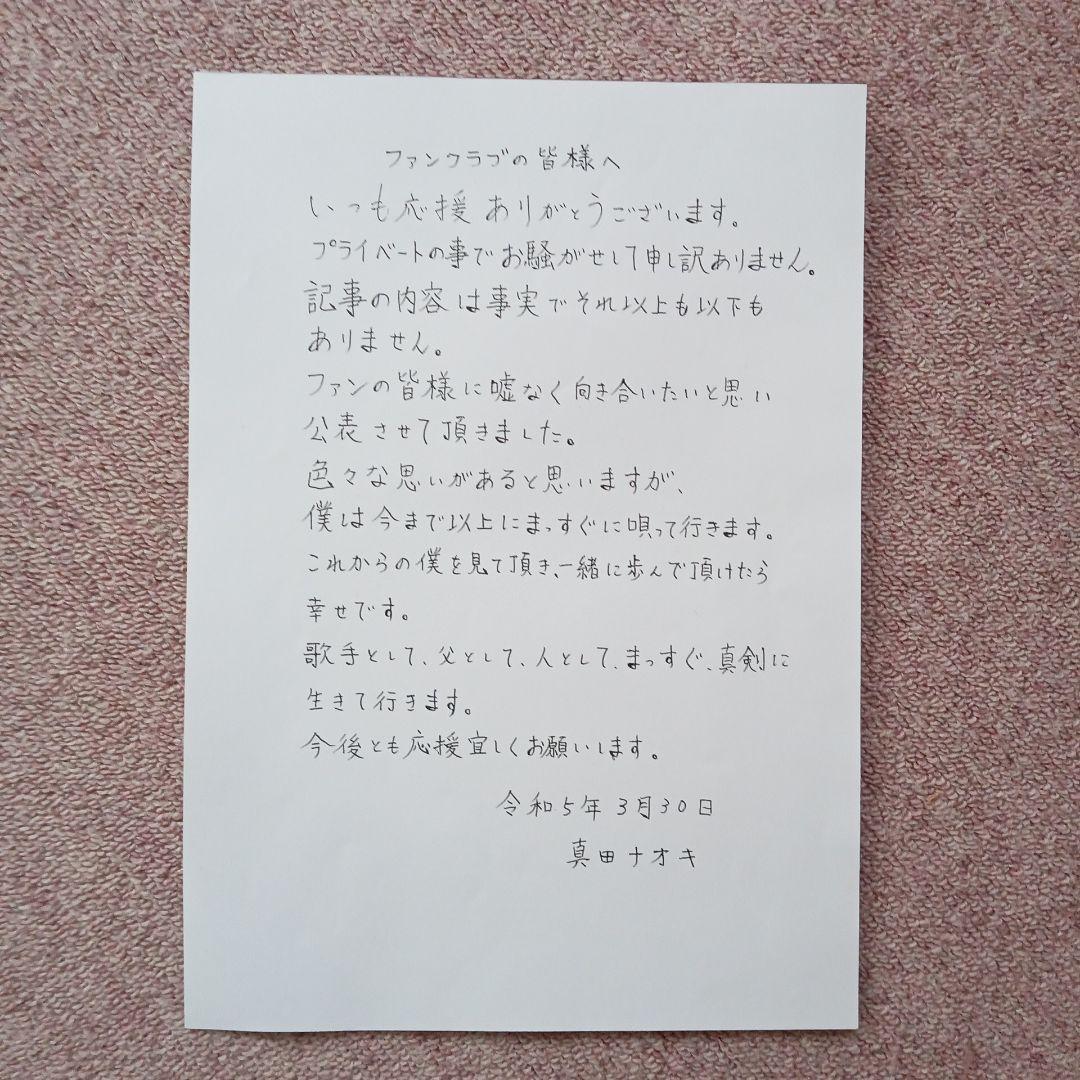 ファンクラブの皆様へ
いつも応援ありがとうございます。
プライベートの事でお騒がせして申し訳ありません。
記事の内容は事実でそれ以上も以下も
ありません。
ファンの皆様に嘘なく向き合いたいと思い
公表させて頂きました。
色々な思いがあると思いますが、
僕は今まで以上にまっすぐに唄って行きます。
これからの僕を見て頂き、一緒に歩んで頂けたら
幸せです。
歌手として、父として、人として、まっすぐ、真剣に
生きて行きます。
今後とも応援宜しくお願いします。
令和5年3月30日
真田ナオキ